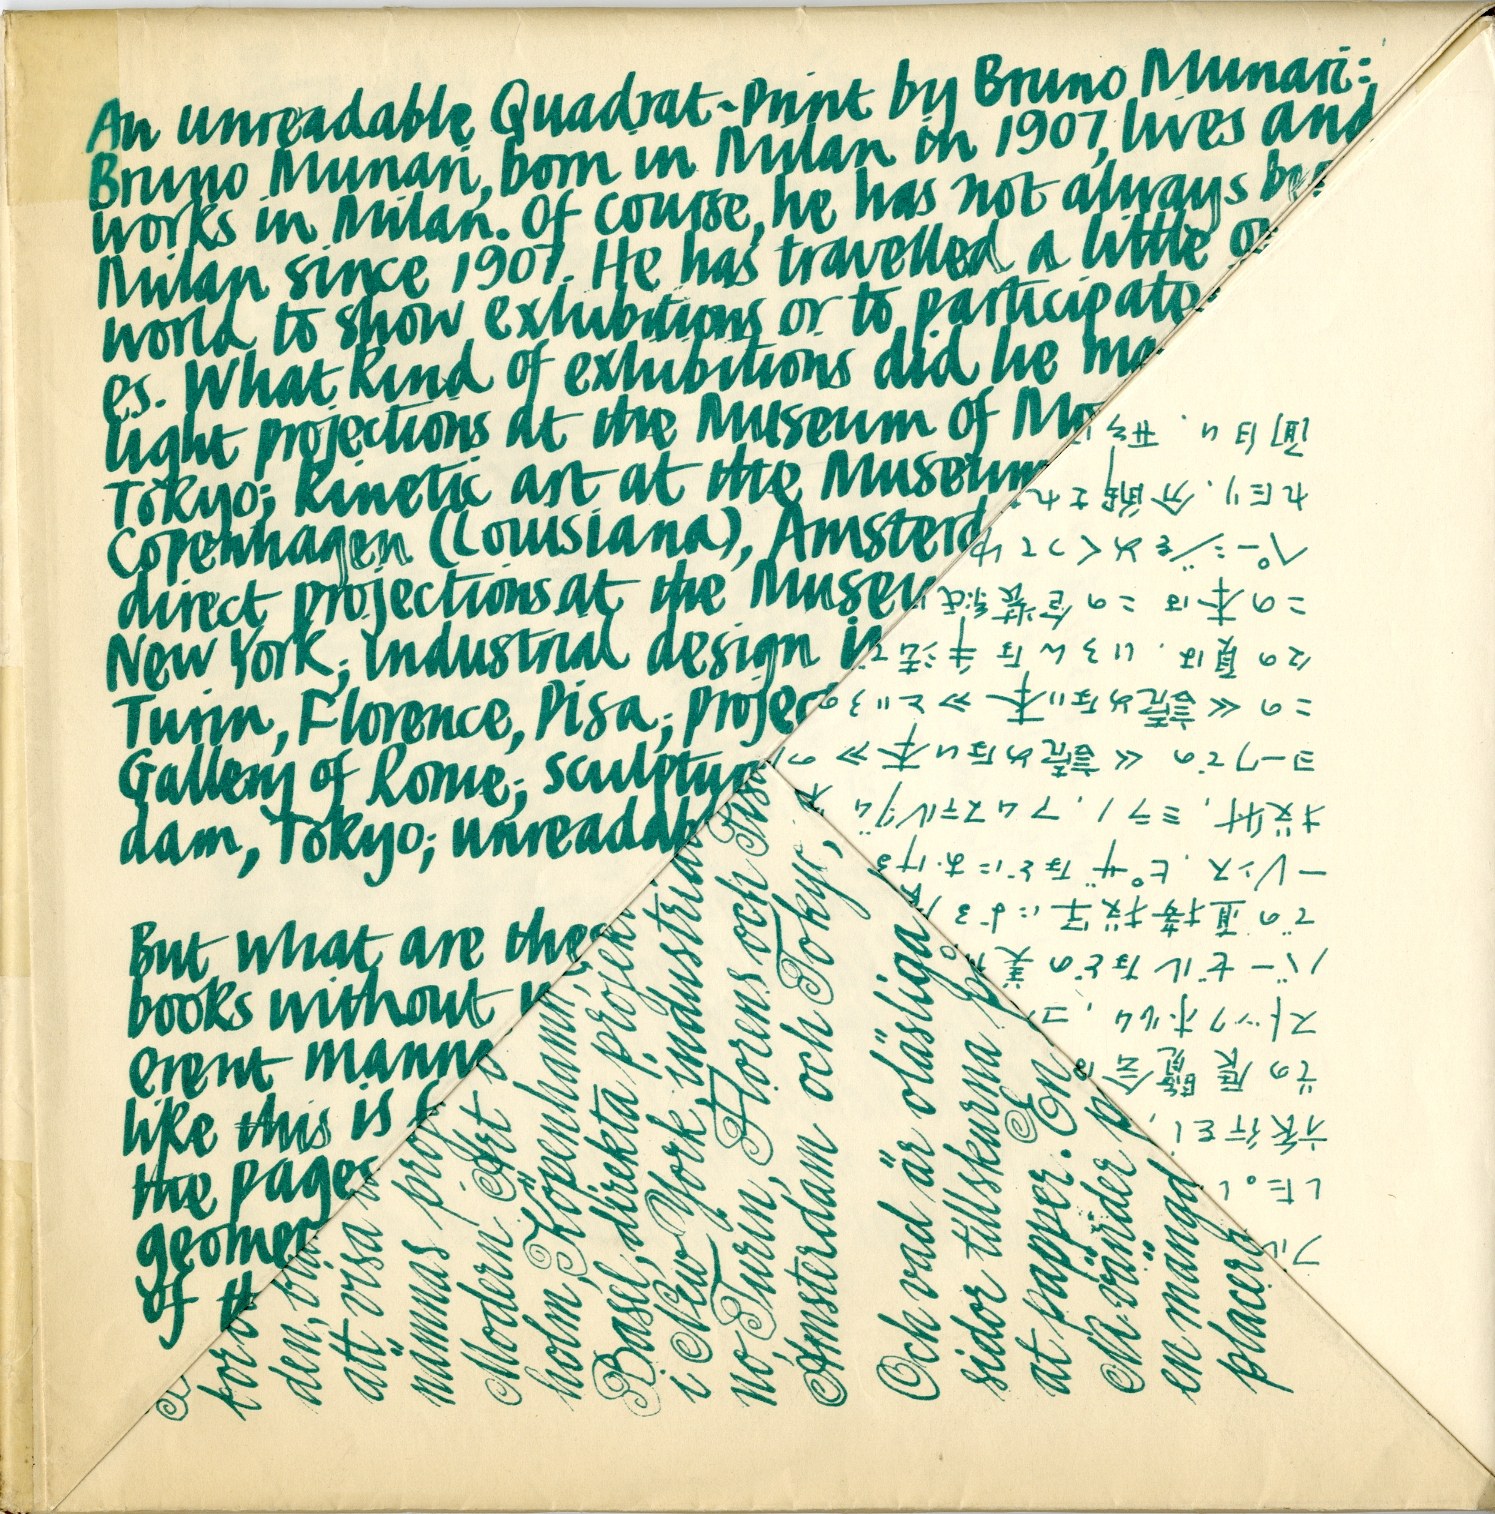 An unreadable Quadrat-Print by Bruno Munari:
Bruno Munari, born in Milan in 1907, lives and
works in Milan. Of course, he has not always bee
Milan since 1907. He has travelled a little o
world to show exhibitions or to participate
es. What kind of exhibitions did he ma
light projections at the Museum of Mo
Tokyo; kinetic art at the Museum
Copenhagen (Louisiana), Amsterd
direct projections at the Museu
New York; industrial design in
Turin, Florence, Pisa; projec
Gallery of Rome; sculptur
dam, Tokyo; unreadab
But what are thes
books without w
erent manne
like this is f
the pages
geomet
of th
den, bla
att visa
namnas pro
Modern Art
holm, Köpenhamn,
Basel, direkta projekt
i New York, industria
no, Turin, Florens och Pisa
Amsterdam och Tokyo,
Och vad är oläsliga
sidor tillskurna på
at papper. En
Man vänder p
en mängd
placera
フル
した。し
旅行をし、
その展覧会は
ストックホルム、コ
バーゼルなどの美
での直接投写による
ーレンス、ピサなどにおける
ミラノ、アムステルダム
ヨークでの≪読めない本≫の
この≪読めない本≫という
つの頁は、いろんな手法で
この本はこの包装紙
ページをめくってゆ
れたり、